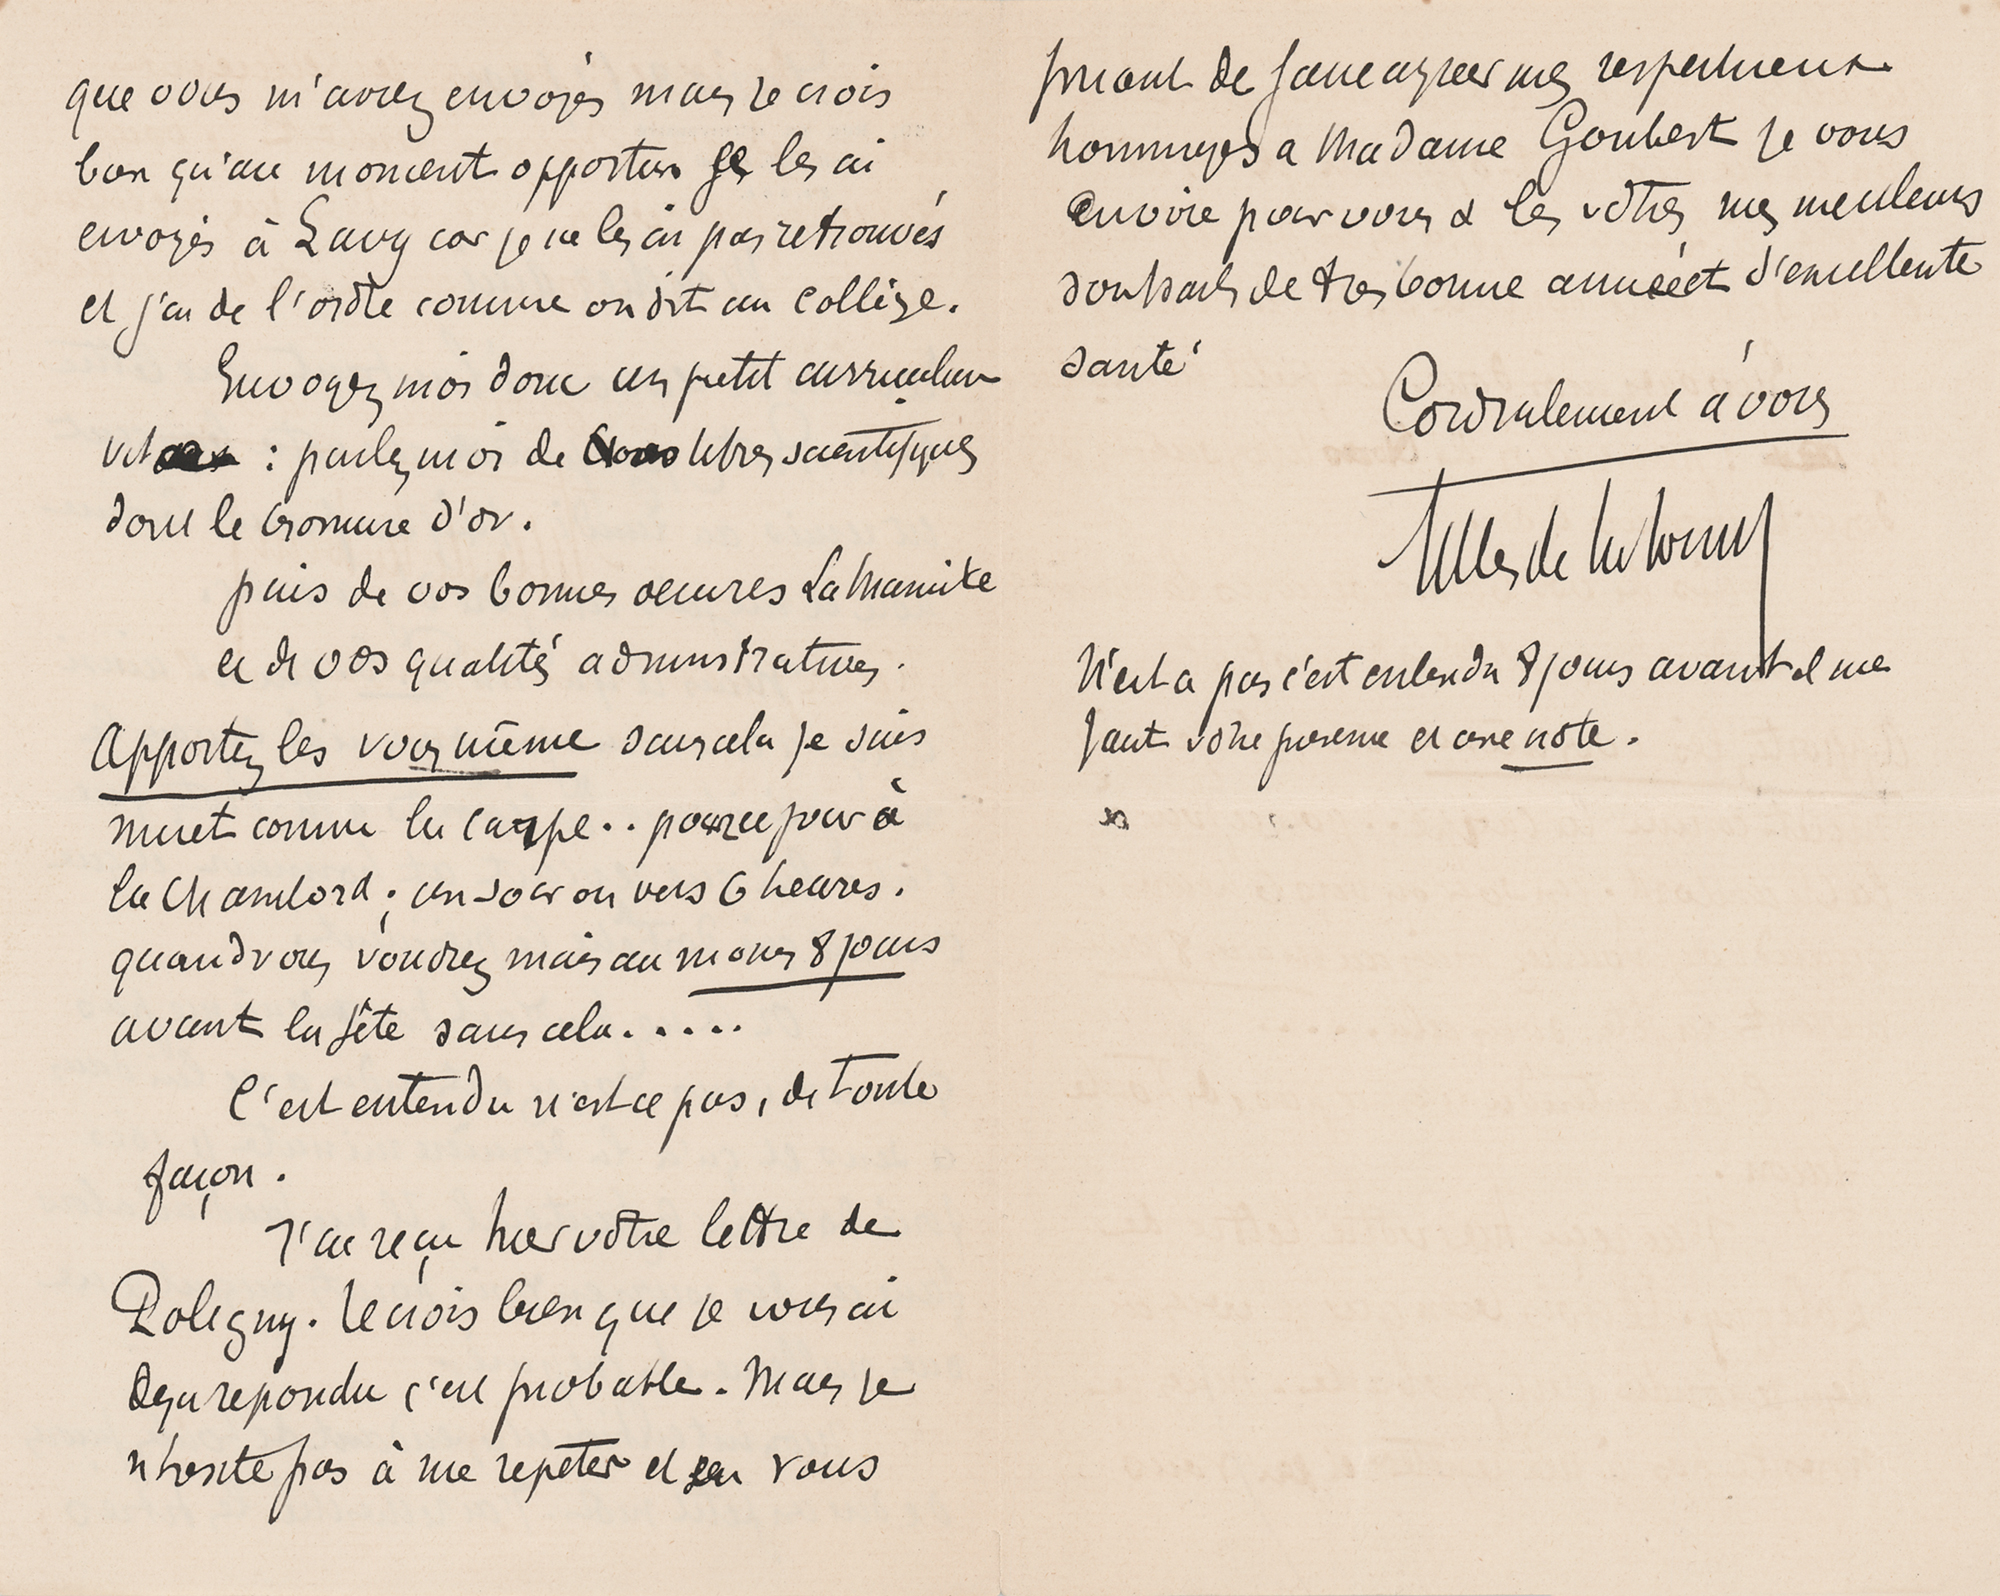 que vous m'aviez envoyés mais je crois
bien qu'au moment opportun je les ai
envoyés à Lavy car je ne les ai pas retrouvés
et j'ai de l'ordre comme on dit au collège.
Envoyez moi donc un petit curriculum
vitae : parlez moi de vos titres scientifiques
dont le bromure d'or.
puis de vos bonnes oeuvres La Marmite
et de vos qualités administratives.
Apportez les vous même sans cela je suis
muet comme la carpe.. pour ce jour à
la Chambord ; un soir on vers 6 heures.
quand vous voudrez mais au moins 8 jours
avant la fête sans cela.....
C'est entendu n'est ce pas, de toute
façon.
J'ai reçu hier votre lettre de
Poligny. Je crois bien que je vous ai
deja repondu c'est probable. Mais je
n'hesite pas à me repeter et en vous
priant de faire agreer mes respectueux
hommages a Madame Goubert je vous
envoie pour vous & les vôtres mes meilleurs
souhaits de tres bonne année et d'excellente
santé
Cordialement à vous
Gilles de la Tourette
N'est ce pas c'est entendu 8 jours avant il me
faut votre presence et une note.